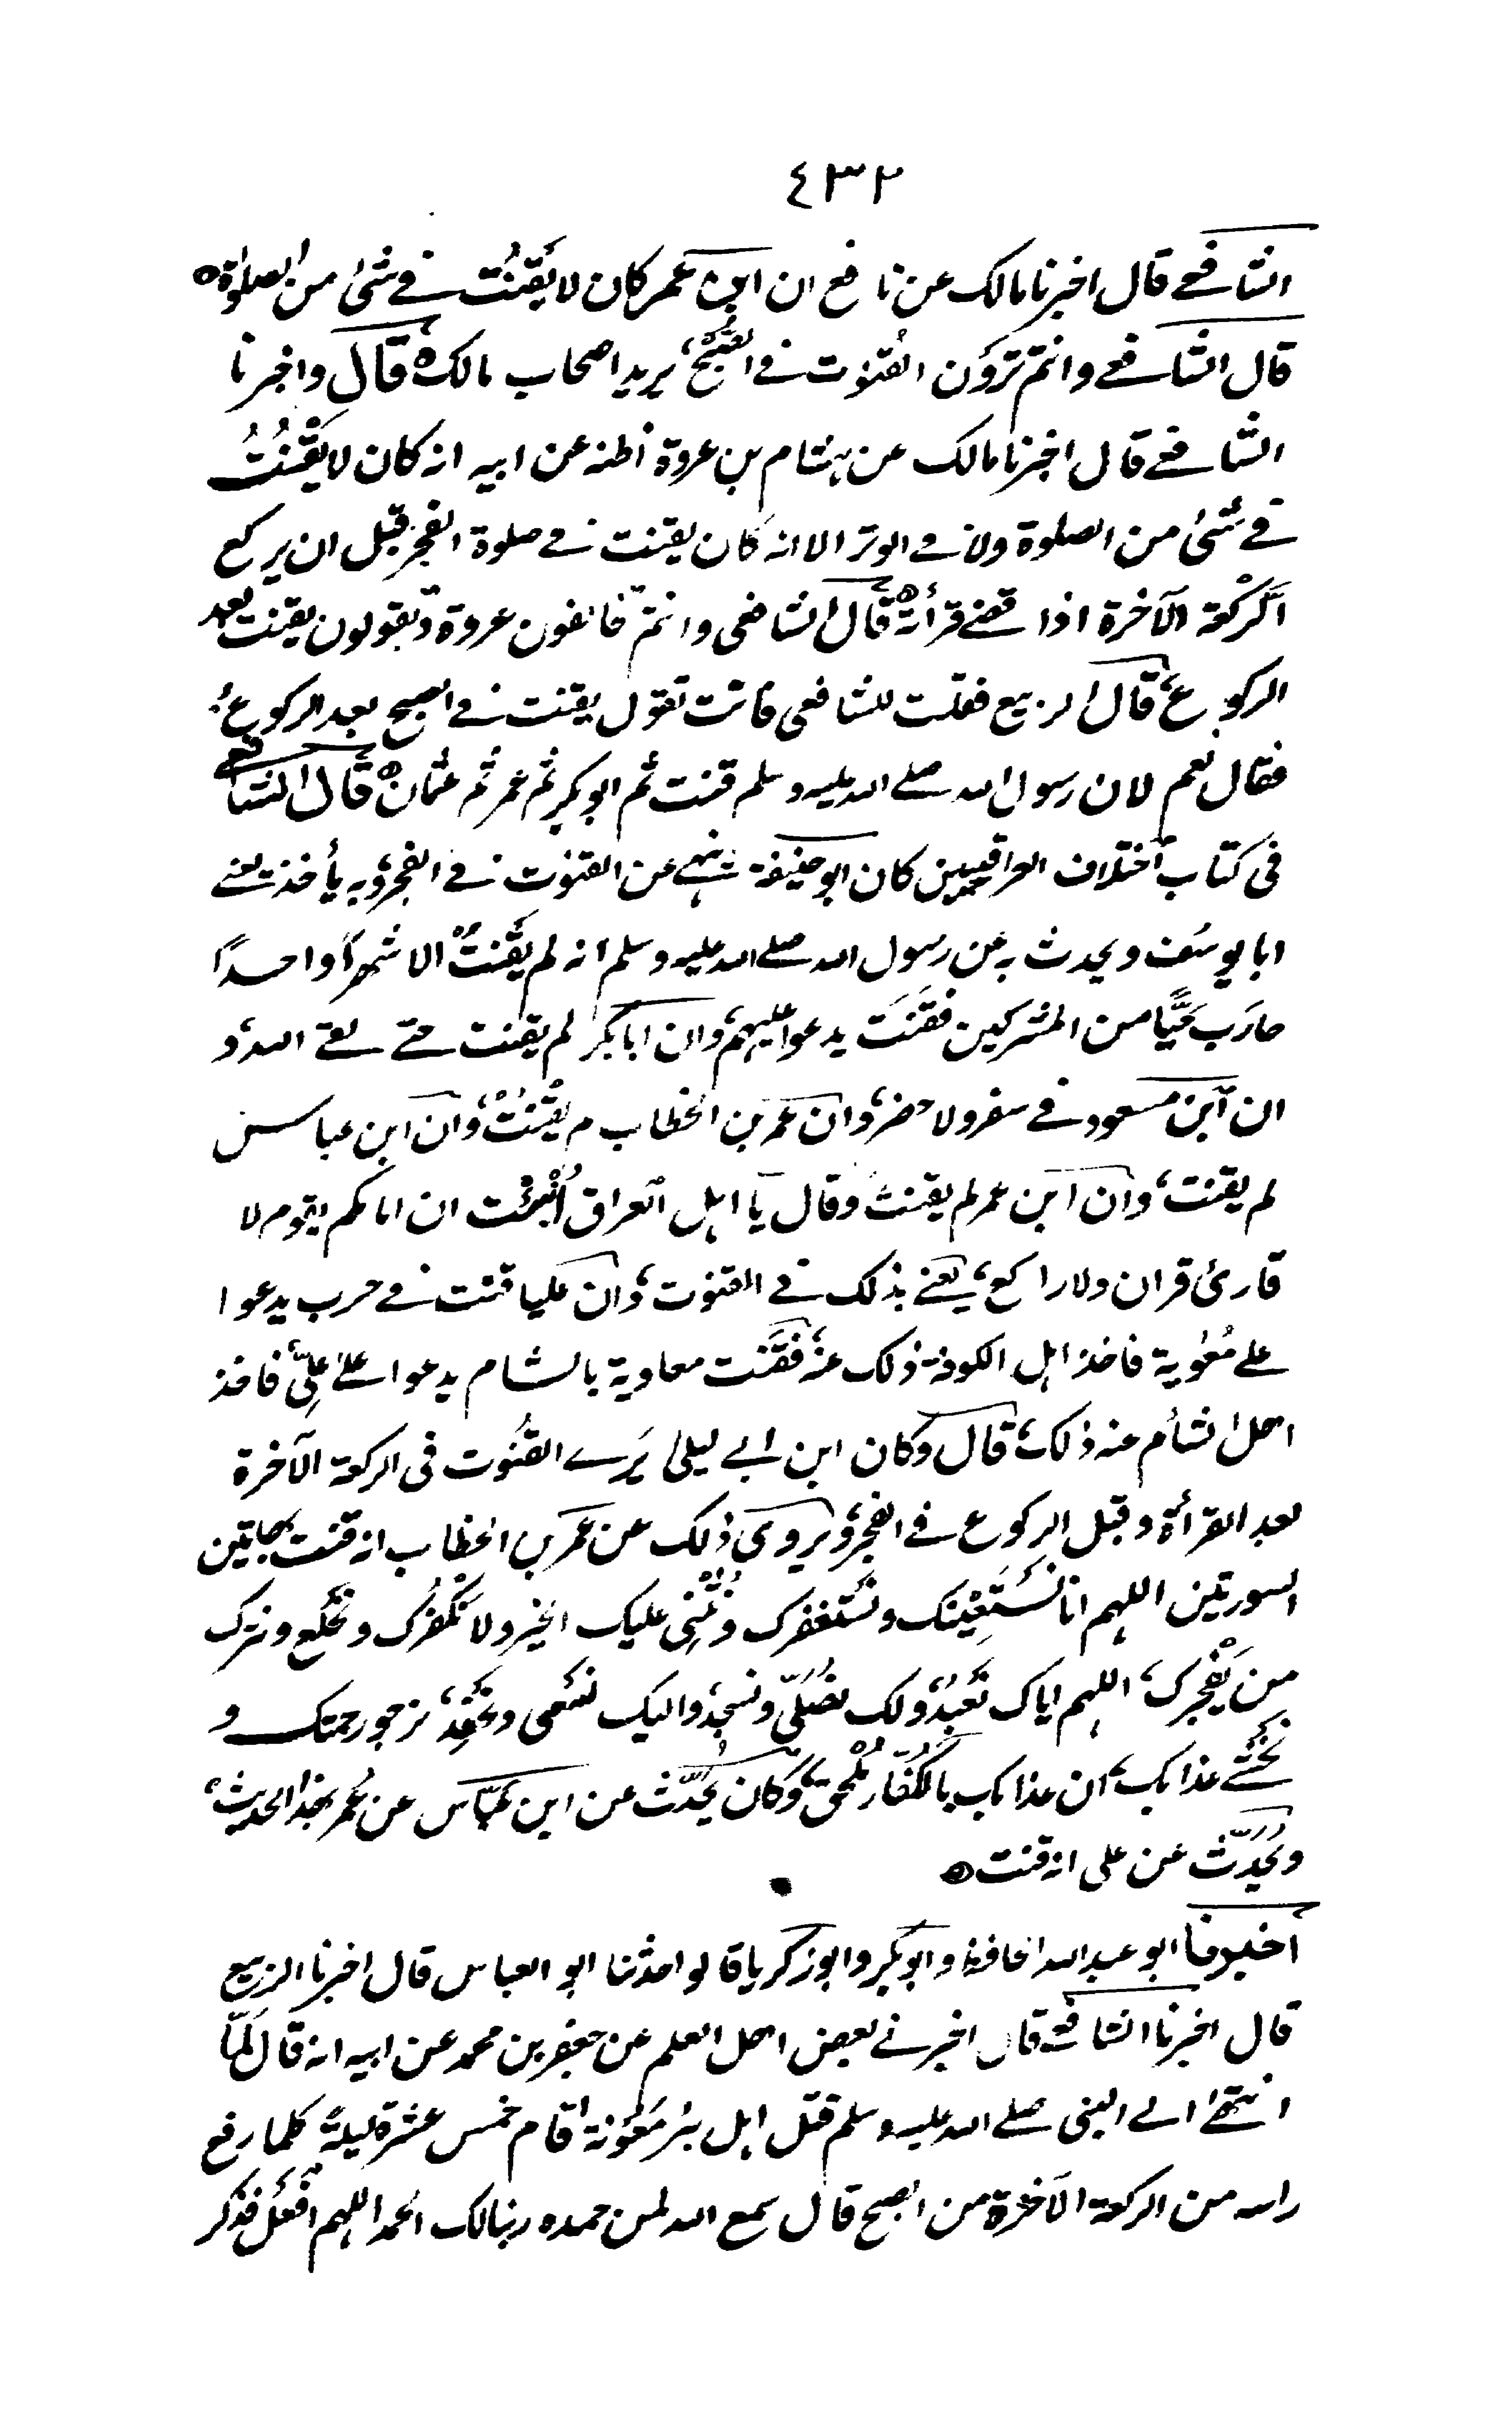 ٤٣٢
الشافعي قال اخبرنا مالك عن نافع ان ابن عمر كان لا يَقنُت في شئ من الصلوٰة ه
قال الشافعي وانتم ترَون القنوت في الصُّبح، يريد اصحاب مالك ه قال واخبرنا
الشافعي قال اخبرنا مالك عن هشام بن عروة اظنه عن ابيه انه كان لا يَقْنُتُ
في شئ من الصلوة ولا في الوتر الا انه كان يقنت في صلوة الفجر قبل ان يركع
الرَّكْعة الآخرة اذا قضى قرأته ه قال الشافعي وانتم تخالفون عروة وتقولون يقنت بعد
الركوع، قال الربيع فقلت للشافعي فانت تقول يقنت في الصبح بعد الركوع؟
فقال نعم لان رسول الله صلى الله عليه وسلم قنت ثم ابو بكر ثم عمر ثم عثمان ه قال الشافعي
في كتاب اختلاف العراقيين كان ابو حنيفة ينهى عن القنوت في الفجر، وبه يأخذ يعني
ابا يوسف ويحدث به عن رسول الله صلى الله عليه وسلم انه لم يَقْنتْ الا شهراً واحداً
حارَب حَيًّا من المشركين فقَنَت يدعوا عليهم، وان ابا بكر لم يقنت حتى لقي الله، و
ان ابن مسعود في سفر ولا حضر، وان عمر بن الخطاب لم يَقْنُتْ، وان ابن عباس
لم يقنت، وان ابن عمر لم يقنت وقال يا اهل العراق اُنْبِئْت ان امامكم يقوم لا
قارئ قران ولا راكع، يعني بذلك في القنوت، وان عليا قنت في حرب يدعوا
على مُعٰوية فاخذ اهل الكوفة ذلك عنه، فقَنَت معاوية بالشام يدعوا على عليّ، فاخذ
اهل الشأم عنه ذلك، قال وكان ابن ابي ليلى يَرى القنُوت في الركعة الآخرة
بعد القرأة وقبل الركوع في الفجر، ويروى ذلك عن عمر بن الخطاب انه قنت بهاتين
السورتين اللهم انا نَستَعِيْنك ونستغفرك ونُثْنِي عليك الخير ولا نَكْفُرك ونخلَع ونترك
من يَفْجرك، اللهم اياك نَعْبُدُ، ولك نصُلّي ونسجد، واليك نسْعى ونَحْفِد، نرجو رحمتك و
نَخْشى عذابك، ان عذابك بالكُفَّار مُلْحق، وكان يُحَدّث عن ابن عبّاس عن عُمر بهذا الحديث،
ويُحَدّث عن علي انه قنت ه
اخبرنا ابو عبد الله الحافظ وابو بكر وابو زكريا قالوا حدثنا ابو العباس قال اخبرنا الربيع
قال اخبرنا الشافعي قال اخبرني بعض اهل العلم عن جعفر بن محمد عن ابيه انه قال لَمّا
انتهى الى النبي صلى الله عليه وسلم قتل اهل بئر مَعُونة اقام خمس عشرة ليلةً كلما رفع
راسه من الركعة الآخرة من الصبح قال سمع الله لمن حمده ربنا لك الحمد اللهم افْعَل فذكر